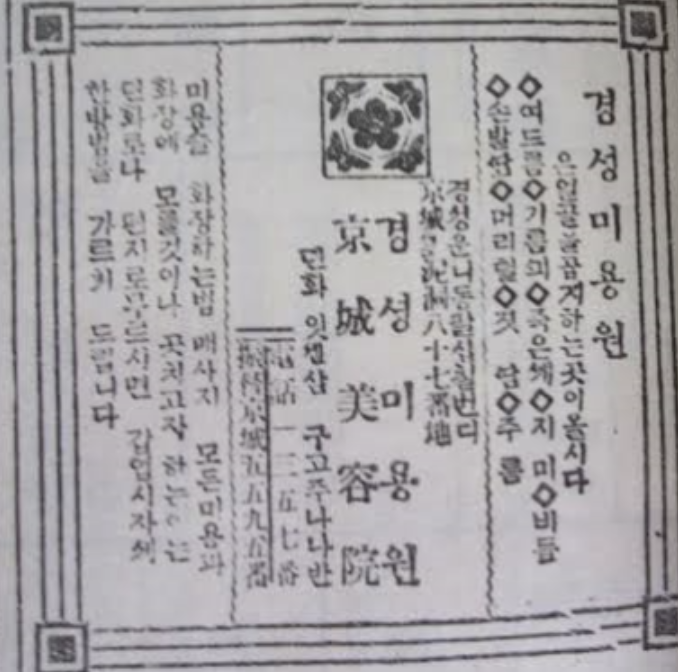 경성미용원
하는곳이올시다
◇여드름◇기름긔◇죽은깨◇지미◇비듬
◇머리털◇주름
경성운니동팔십칠번디
京城雲泥洞八十七番地
경성미용원
京城美容院
뎐화 구고주나나반
電話 一三五七番
振替京城五五九五番
미용술 화장하는법 매사지 모든미용과
화장에 모를것이나 곳치고자 하는이는
뎐화로나 편지로무르시면 갑업시자세
한방법을 가르켜 드립니다